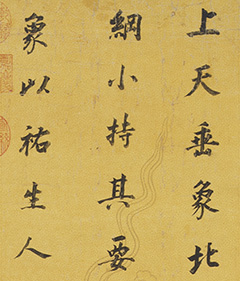 上天垂象北
綱小持其要
象以祐生人